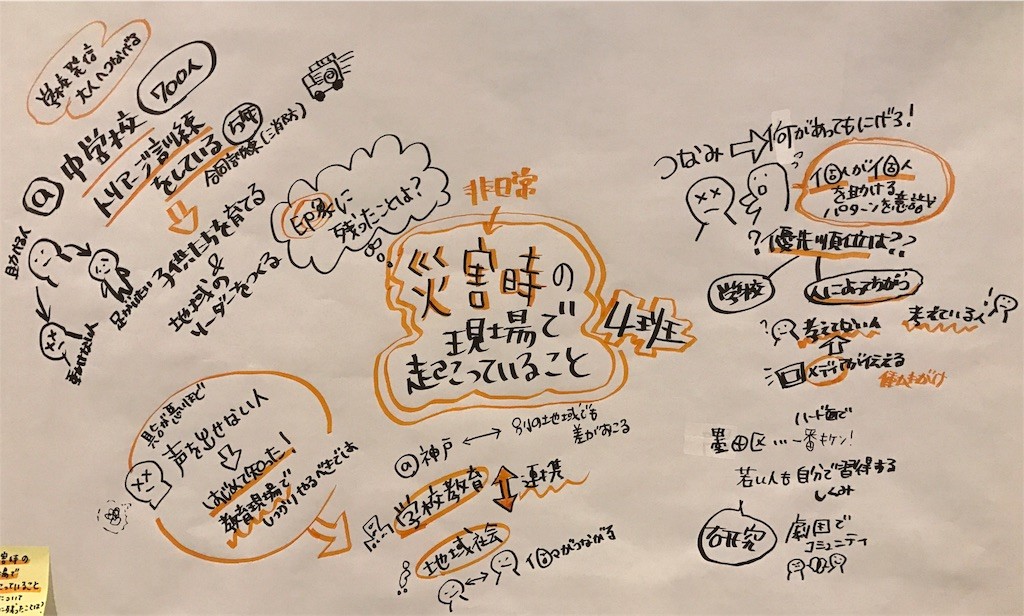 学校発信
大人へつなげる
ⓐ 中学校 700人
トリアージ訓練
をしている 5年
合同訓練(消防)
子供たちを育てる
地域の&
リーダーをつくる
助ける人
足がいたい
動けない人
印象に
残ったことは?
非日常
災害時の
現場で
起こっていること
4班
つなみ ⇨ 何があってもにげろ!
個人が個人
を助ける
パターンを意識
?優先順位は??
学校
人によってちがう
考えてない人
考えている人
メディアが伝える
働きかけ
ハード面で
墨田区…一番キケン!
若い人も自分で習得する
しくみ
研究
劇団で
コミュニティ
具合が悪いほど
声を出せない人
はじめて知った!
教育現場で
しっかりやるべきでは
@神戸 ↔ 別の地域でも
差がおこる
学校教育
連携
地域社会
個々がつながる
っていること
について
残ったことは?